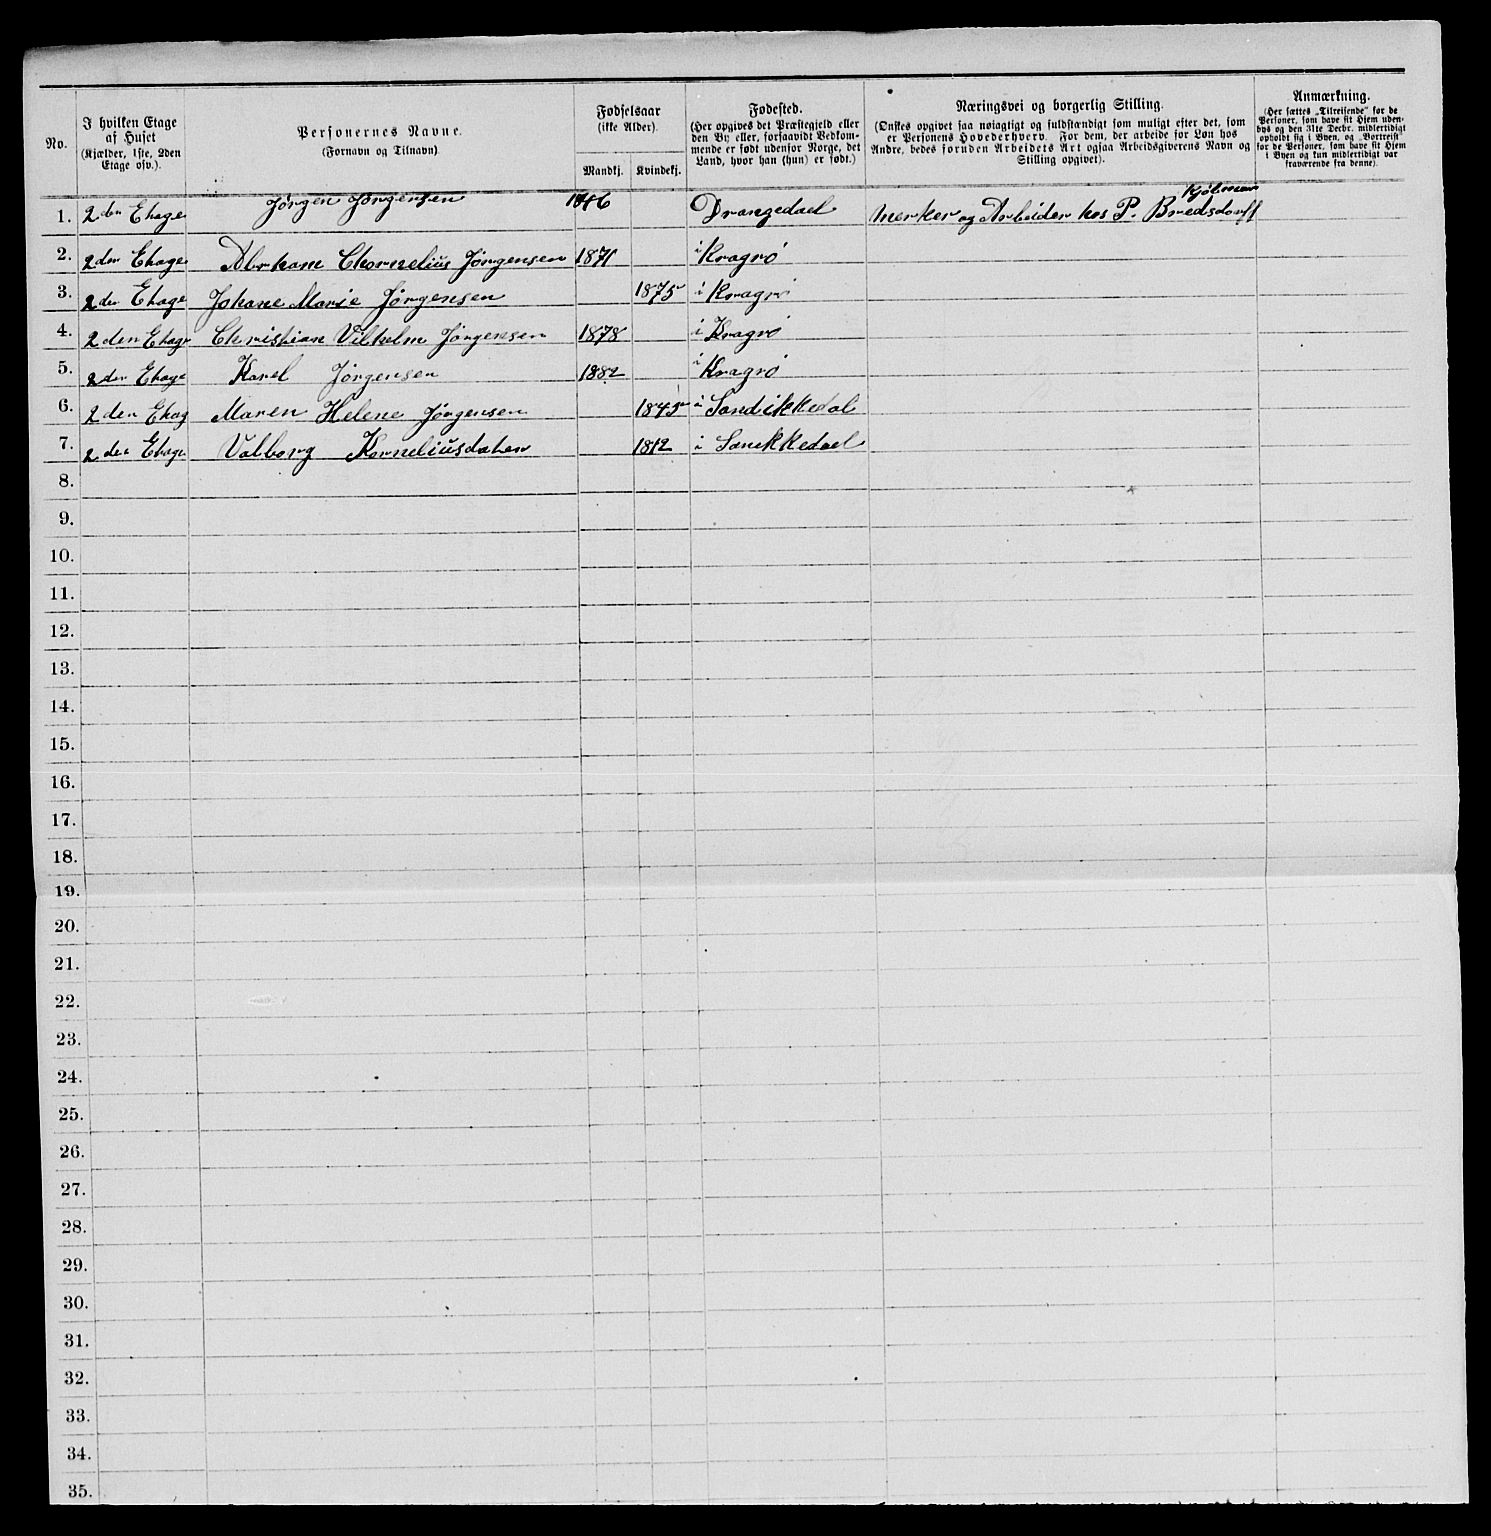 No.
I hvilken Etage af Huset
(Kjælder, 1ste, 2den Etage osv.).
Personernes Navne.
(Fornavn og Tilnavn)
Fødselsaar
(ikke Alder).
Mandkj. Kvindekj.
Fødested.
(Her opgives det Præstegjeld eller
den By eller, forsaavidt Vedkom-
mende er født udenfor Norge, det
Land, hvor han (hun) er født.)
Næringsvei og borgerlig Stilling.
(Ønskes opgivet saa nøiagtigt og fuldstændigt som muligt efter det, som
er Personens Hovederhverv. For dem, der arbeide for Løn hos
Andre, bedes foruden Arbeidets Art ogsaa Arbeidsgiverens Navn og
Stilling opgivet).
Anmærkning.
(Her sættes „Tilreisende“ for de
Personer, som have sit Hjem uden-
bys og den 31te Decbr. midlertidigt
opholdt sig i Byen, og „Bortreist“
for de Personer, som have sit Hjem
i Byen og kun midlertidigt var
fraværende fra denne).
1. 2den Etage Jørgen Jørgensen 1846 Drangedael Merker og Arbeider hos P. Bredsdorff
2. 2den Etage Abrham Chornelius Jørgensen 1871 i Kragrø
3. 2den Etage Johane Marie Jørgensen 1875 i Kragrø
4. 2den Etage Christian Vilhelm Jørgensen 1878 i Kragrø
5. 2den Etage Karel Jørgensen 1882 i Kragrø
6. 2den Etag Maren Helene Jørgensen 1845 i Sandikkedal
7. 2den Etage Valborg Korneliusdater 1812 i Sanekkedael
8.
9.
10.
11.
12.
13.
14.
15.
16.
17.
18.
19.
20.
21.
22.
23.
24.
25.
26.
27.
28.
29.
30.
31.
32.
33.
34.
35.